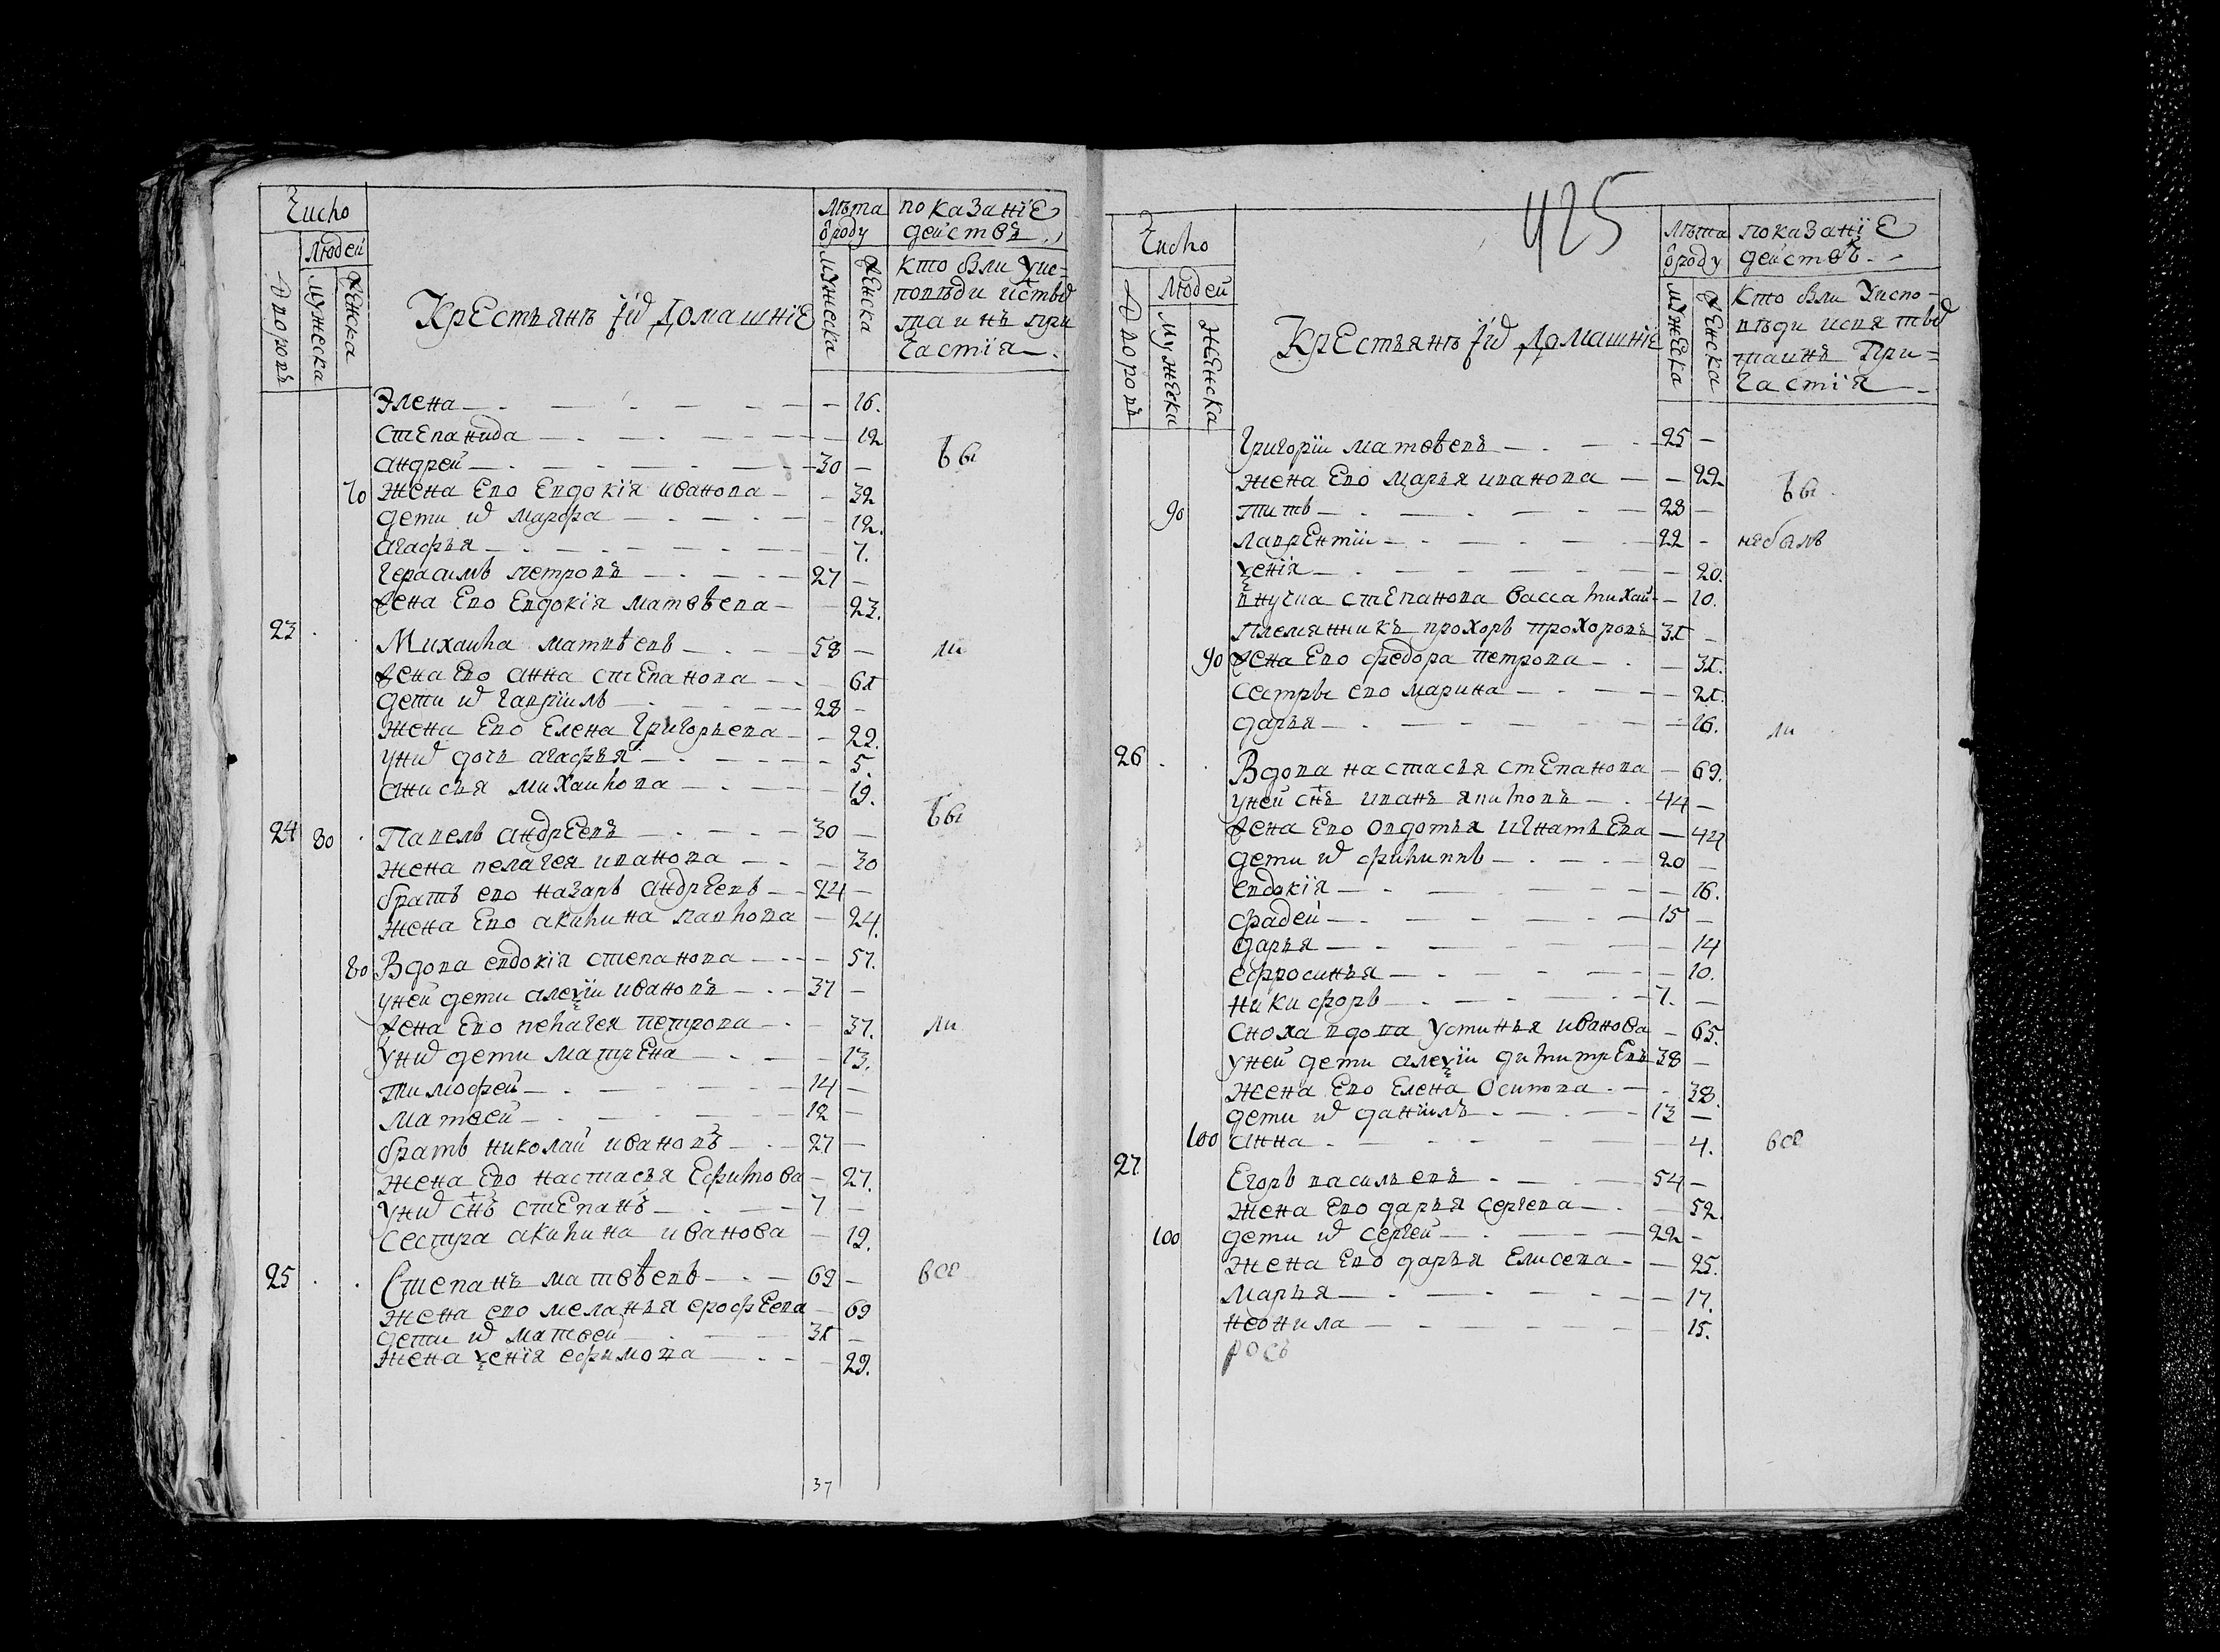 Число
Людей
Дворовъ
Мужеска
Женска
Крестьянъ їихъ Домашніе
Лѣта
ѿроду
Мужеска
Женска
показаніе
действъ
кто были уис-
поведи исвты
таинъ при
частія
Элена 16.
Степанида 12
Андрей 30 бы
70 Жена Ево Евдокія иванова 32
дети их Марфа 12.
Агафья 7.
Герасимъ петровъ 27
Жена Ево Евдокія матвѣева 23.
23 Михайла матвѣевъ 58 ли
Жена Ево Анна степанова 61
дети их гавріилъ 28
Жена Ево Елена Григорьева 22.
уних дочь агафья 5.
Анисья михайлова 19.
24 80 Павелъ андреевъ 30 бы
Жена пелагея иванова 30
братъ ево назаръ андреевъ 24
Жена Ево акилина павлова 24.
80 Вдова евдокія степанова 57.
уней дети алеѯїи ивановъ 37
Жена Ево пелагея петрова 37. ли
Уних дети матрена 13.
тимофей 14
матвей 12
братъ николай ивановъ 27
Жена Ево настасья Ефимова 27.
Уних снъ степанъ 7
Сестра акилина иванова 19.
25 Степанъ матвѣевъ 69 все
Жена ево меланья ерофеева 69
дети их матвей 31
Жена ѯенія ефимова 29.
37
425
Число
Людей
Дворовъ
Мужески
Женска
Крестьянъ їихъ Домашніе
Лѣта
ѿроду
Мужеска
Женска
показаніе
действъ
кто были Уиспо-
вѣди исвятых
таинъ При-
частія
Григорїи матвѣевъ 25
Жена Ево Марья иванова 22 бы
90 титъ 28
лаврентїи 22 небылъ
ѯенія 20.
внучка степанова васса михай 10.
Племянникъ прохоръ прохоровъ 31
90 Жена Ево федора петрова 31.
Сестры ево марина 21.
дарья 16. ли
26 Вдова настасья степанова 69.
уней снъ иванъ 44
Жена Ево овдотья игнатьева 44
дети их филиппъ 20
евдокія 16.
фадей 15
дарья 14
ефросинья 10.
никифоръ 7.
Сноха вдова устинья иванова 65.
Уней дети алеѯїи димитреевъ 38
Жена Ево Елена Осипова 38.
дети их данїилъ 13
100 Анна 4. все
27 Егоръ васильевъ 54
Жена Ево дарья сергеева 52.
100 дети их сергей 22
Жена Ево дарья Елисеева 25.
Марья 17.
неонила 15.
рось